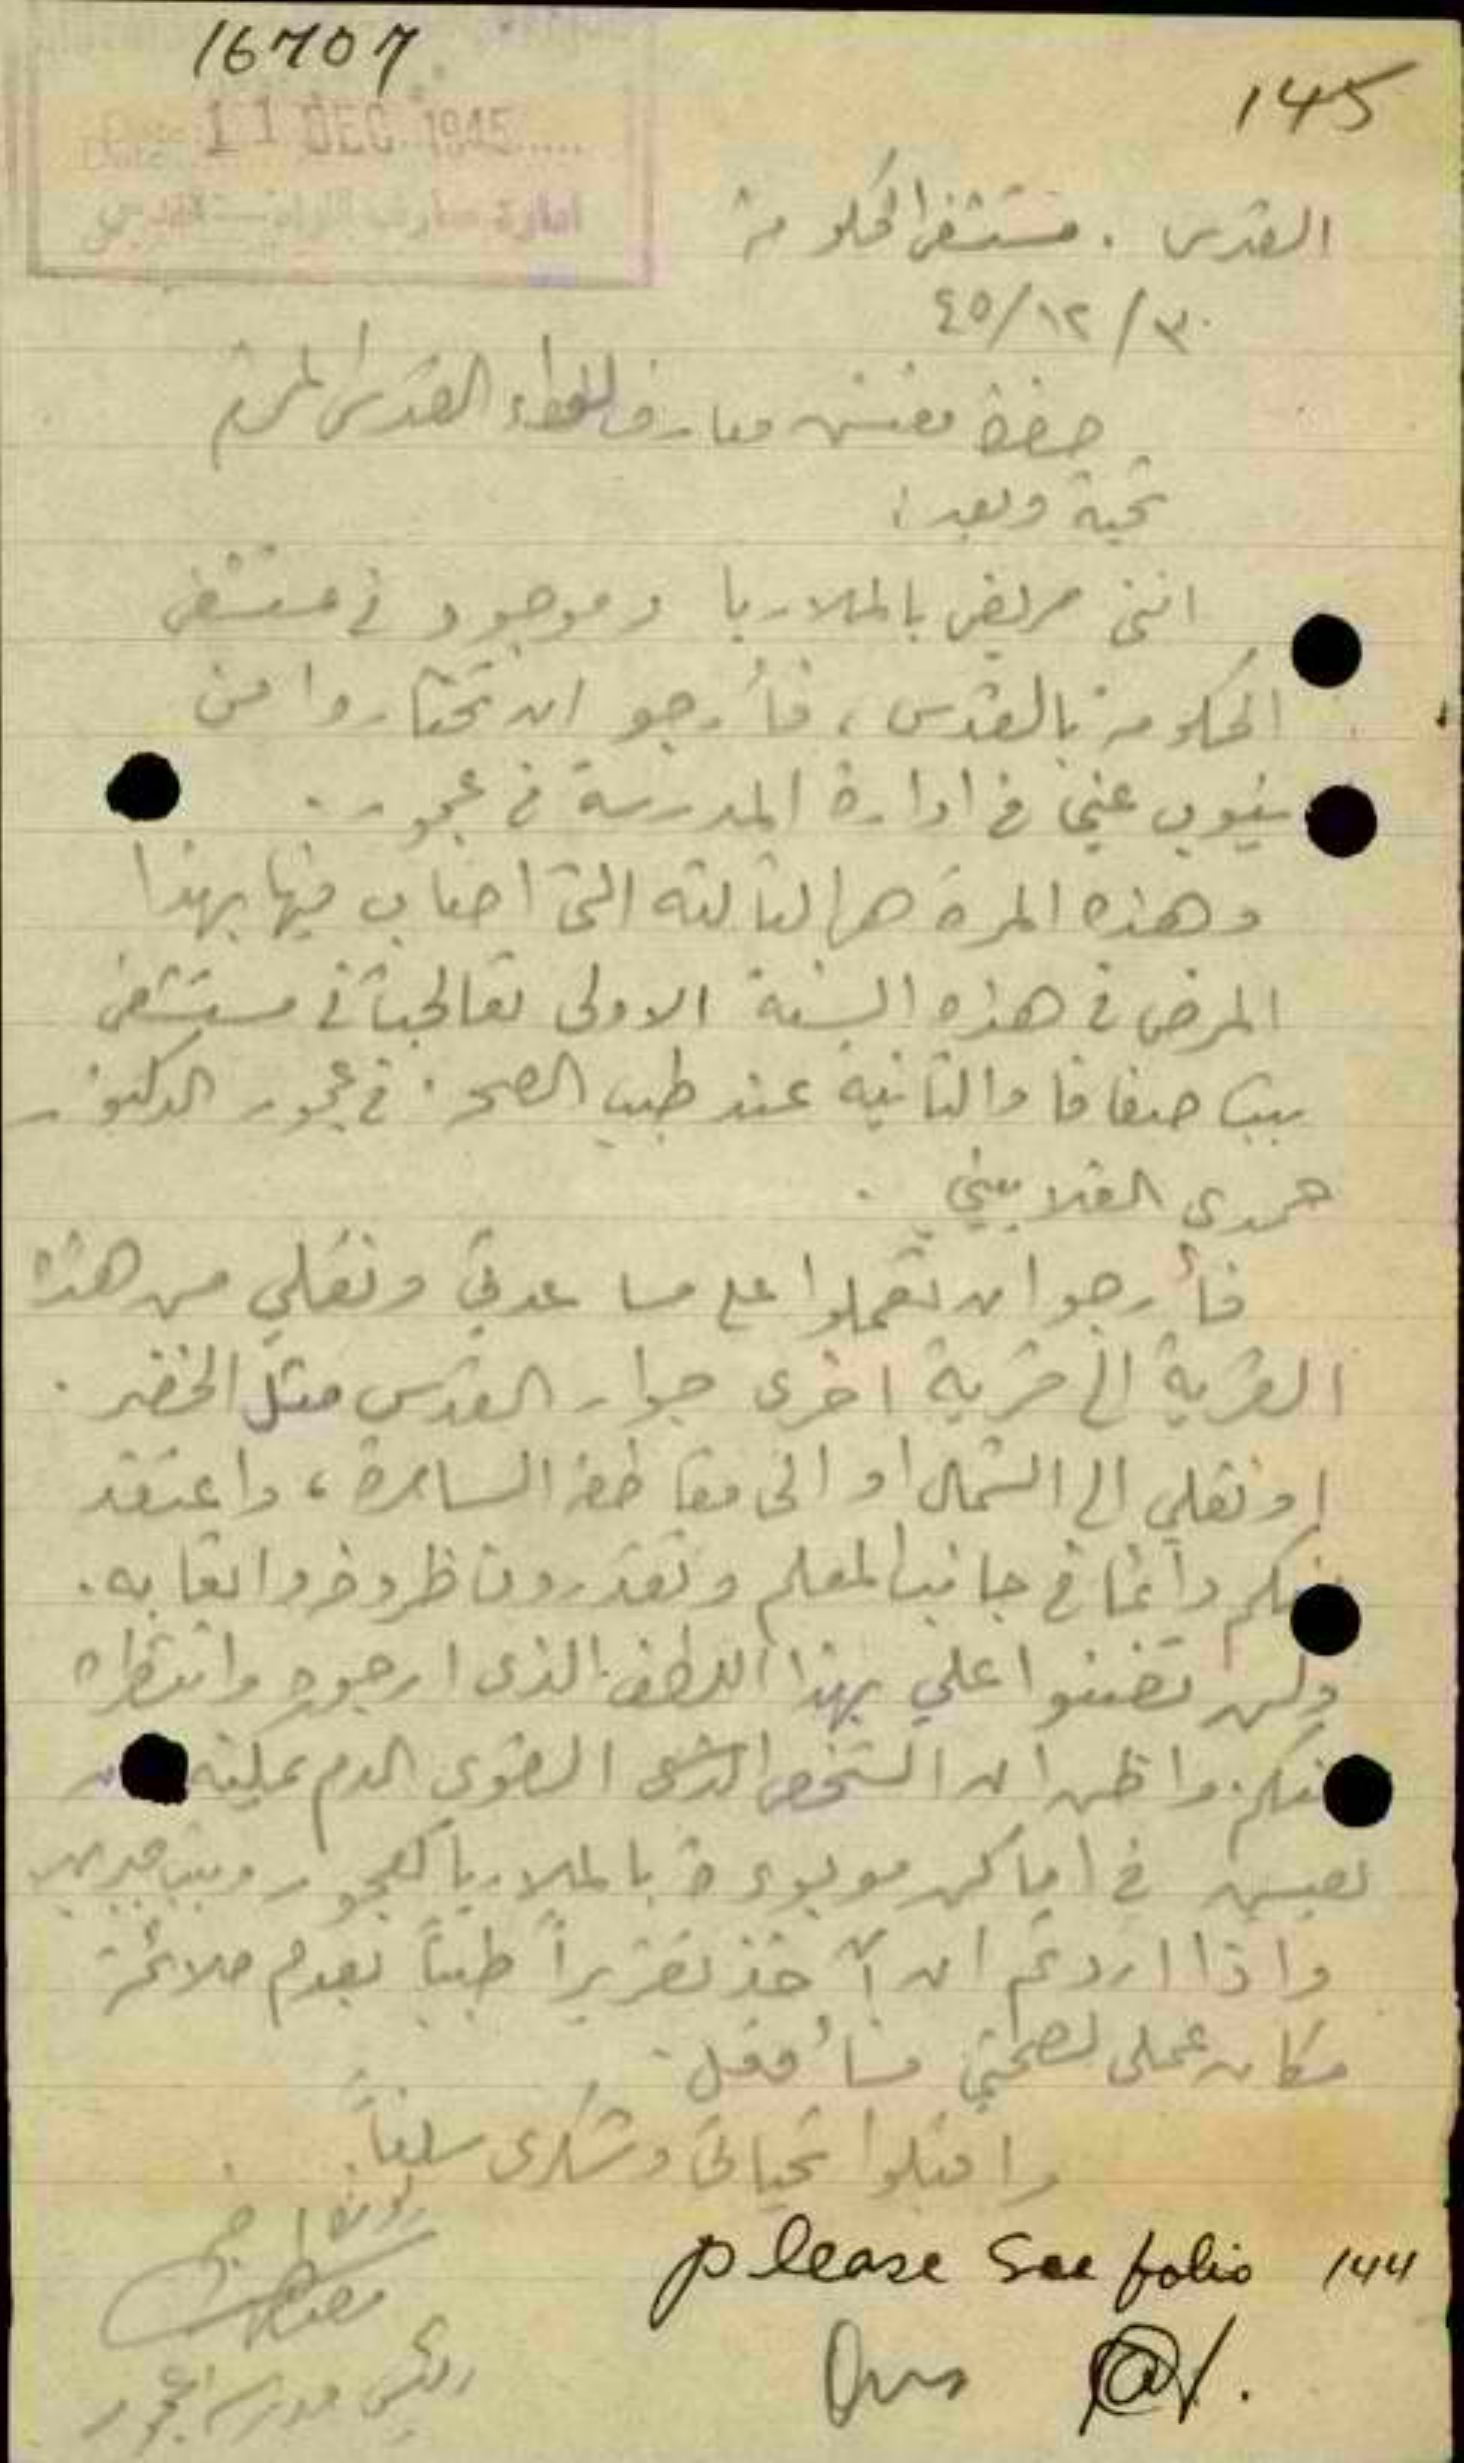 16707
145
11 DEC 1945
ادارة معارف اللواء - القدس
القدس . مستشفى الحكومة
٤٥/١٢/٣٠
حضرة مفتش معارف للواء القدس المحترم
تحية وبعد :
انني مريض بالملاريا وموجود في مستشفى
الحكومة بالقدس ، فأرجو ان تختاروا من
ينوب عني في ادارة المدرسة في عجور .
وهذه المرة هي الثالثة التي اصاب فيها بهذا
المرض في هذه السنة الاولى تعالجت في مستشفى
بيت صفافا والثانية عند طبيب الصحة في عجور الدكتور
حمدي
فأرجو ان تعملوا على مساعدتي ونقلي من هذه
القرية الى قرية اخرى جوار القدس مثل الخضر .
او نقلي الى الشمال او الى مقاطعة السامرة ، واعتقد
انكم دائما في جانب المعلم وتقدرون ظروفه واتعابه .
ولن تضنوا علي بهذا اللطف الذي ارجوه وانتظره
منكم . واظن ان الشخص القوي الدم يمكنه ان
يعيش في اماكن موبوءة بالملاريا كعجور وبيت جبرين
واذا اردتم ان آخذ تقريراً طبياً بعدم ملائمة
مكان عملي لصحتي فسأفعل .
واقبلوا تحياتي وشكري سلفاً .
رئيس مدرسة عجور
please see folio 144